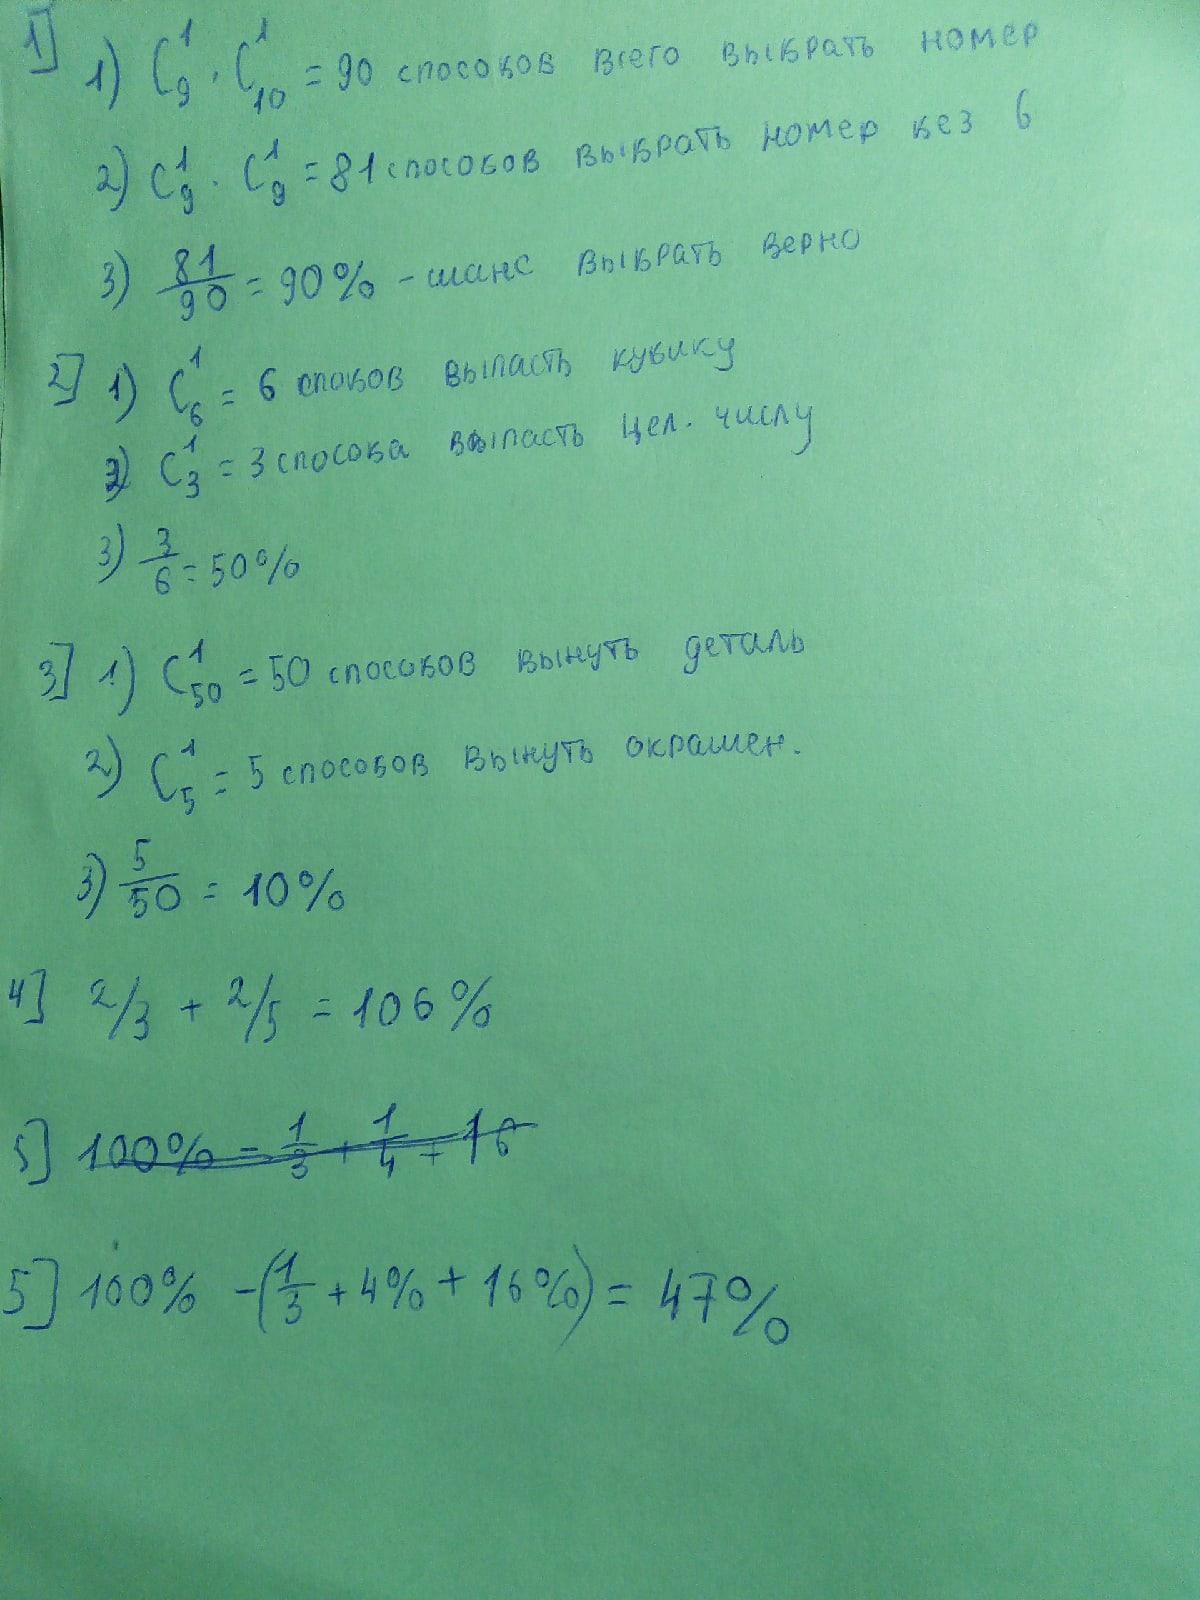 1] 1) C₉¹ · C₁₀¹ = 90 способов всего выбрать номер
2) C₉¹ · C₉¹ = 81 способов выбрать номер без 6
3) 81/90 = 90% - шанс выбрать верно
2] 1) C₆¹ = 6 спобов выпасть кубику
2) C₃¹ = 3 способа выпасть цел. числу
3) 3/6 = 50%
3] 1) C₅₀¹ = 50 способов вынуть деталь
2) C₅¹ = 5 способов вынуть окрашен.
3) 5/50 = 10%
4] 2/3 + 2/5 = 106%
5] 100% - 1/3 + 1/4 + 16
5] 100% - (1/3 + 4% + 16%) = 47%